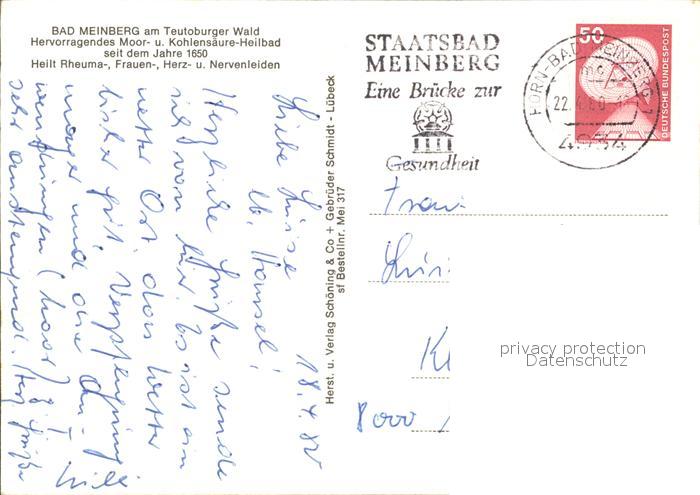 BAD MEINBERG am Teutoburger Wald
Hervorragendes Moor- u. Kohlensäure-Heilbad
seit dem Jahre 1650
Heilt Rheuma-, Frauen-, Herz- u. Nervenleiden
18.4.80
Liebe Luise
u. Hansel!
Herzliche Grüße sende
ich von hier. Es ist ein
netter Ort, das Wetter
bisher gut, Verpflegung
mager und die An-
wendungen (Moor)
sehr anstrengend. Herzl. Grüße
Herst. u. Verlag Schöning & Co + Gebrüder Schmidt - Lübeck
sf Bestellnr. Mei 317
STAATSBAD
MEINBERG
Eine Brücke zur
Gesundheit
HORN-BAD MEINBERG 1
22.4.80
4934
50
DEUTSCHE BUNDESPOST
Frau
8000
privacy protection
Datenschutz